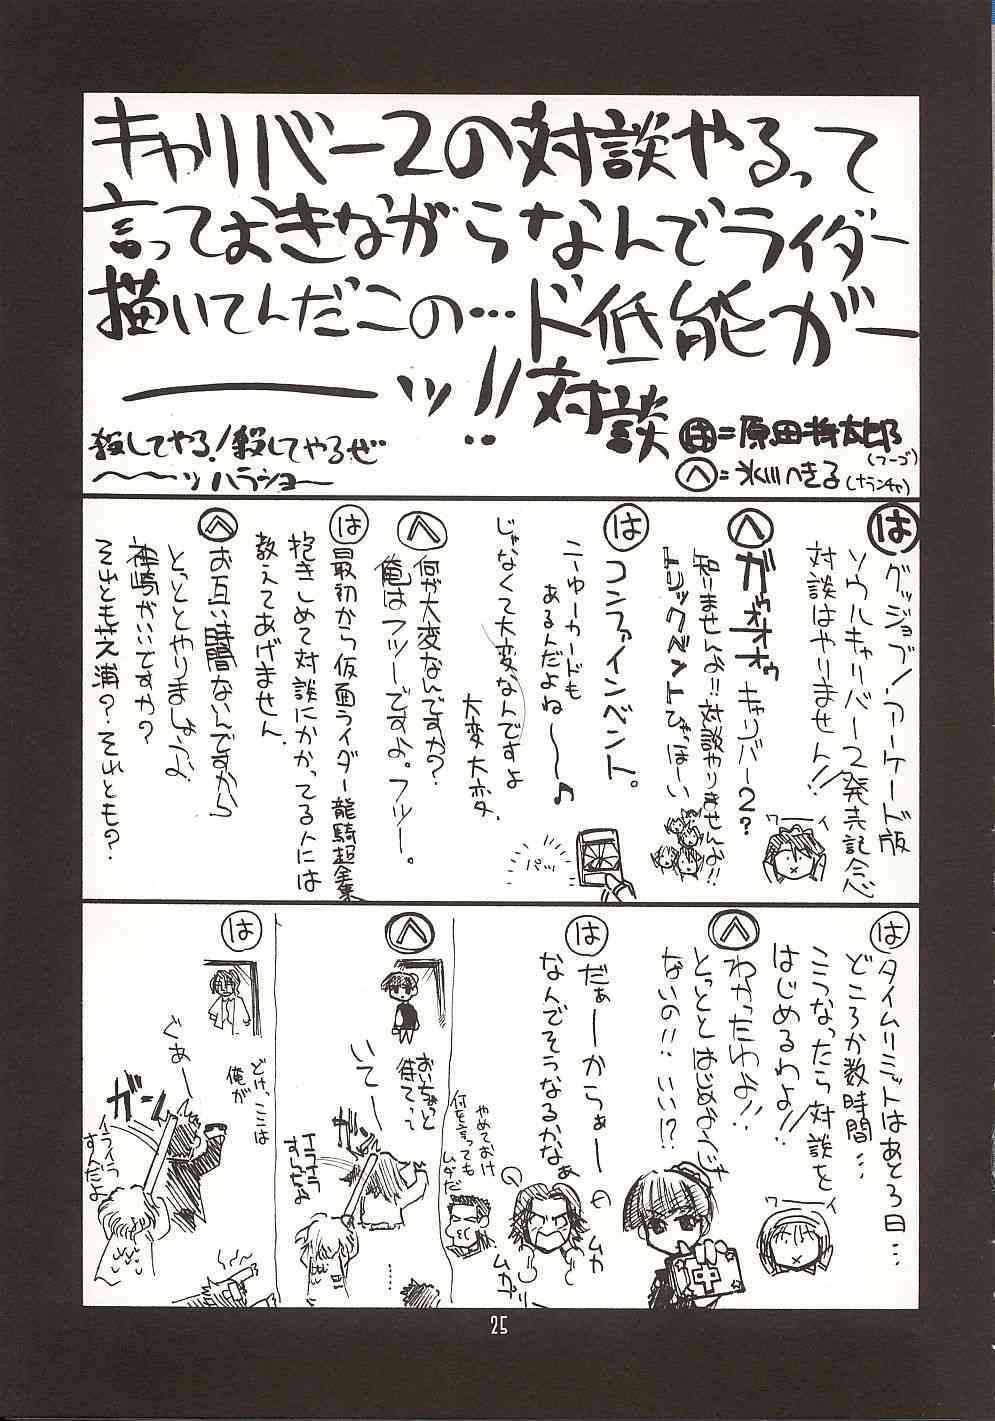 キャリバー2の対談やるって
言っておきながらなんでライダー
描いてんだこの…ド低能がー
ーーーッ!!対談
殺してやる!殺してやるぜ
〜〜〜ッハラショー
は=原田将太郎
(フーゴ)
へ=氷川へきる(ナランチャ)
は
グッジョブ!アーケード版
ソウルキャリバー2発売記念
対談はやりません!!
ワーイ
へ
ガゥオオオゥ キャリバー2?
知りませんよ!!対談やりませんよ!!
トリックベントひゃほーい
は
コンファインベント。
ニューカードも
あるんだよね〜〜♪
パッ
じゃなくて大変なんですよ
大変大変
へ
何が大変なんですか?
俺はフツーですよ。フツー。
は
最初から仮面ライダー龍騎超全集
抱きしめて対談にかかってる人には
教えてあげません
へ
お互い時間ないんですから
とっととやりましょうよ
神崎がいいですか?
それとも芝浦?それとも?
は
タイムリミットはあと3日…
どころか数時間…
こうなったら対談を
はじめるわよ!!
ワーイ
へ
わかったわよ!!
とっととはじめようじゃ
ないの!!いい!?
中
は
だぁーからぁー
なんでそうなるかなぁ
ムカ
ムカ
やめておけ
何を言っても
ムダだ
へ
おいちょっと
待てって
いてー
イライラ
すんだよ
……
は
どけ、ここは
俺が
ぐぁー
ガーン
イライラ
すんだよ
25